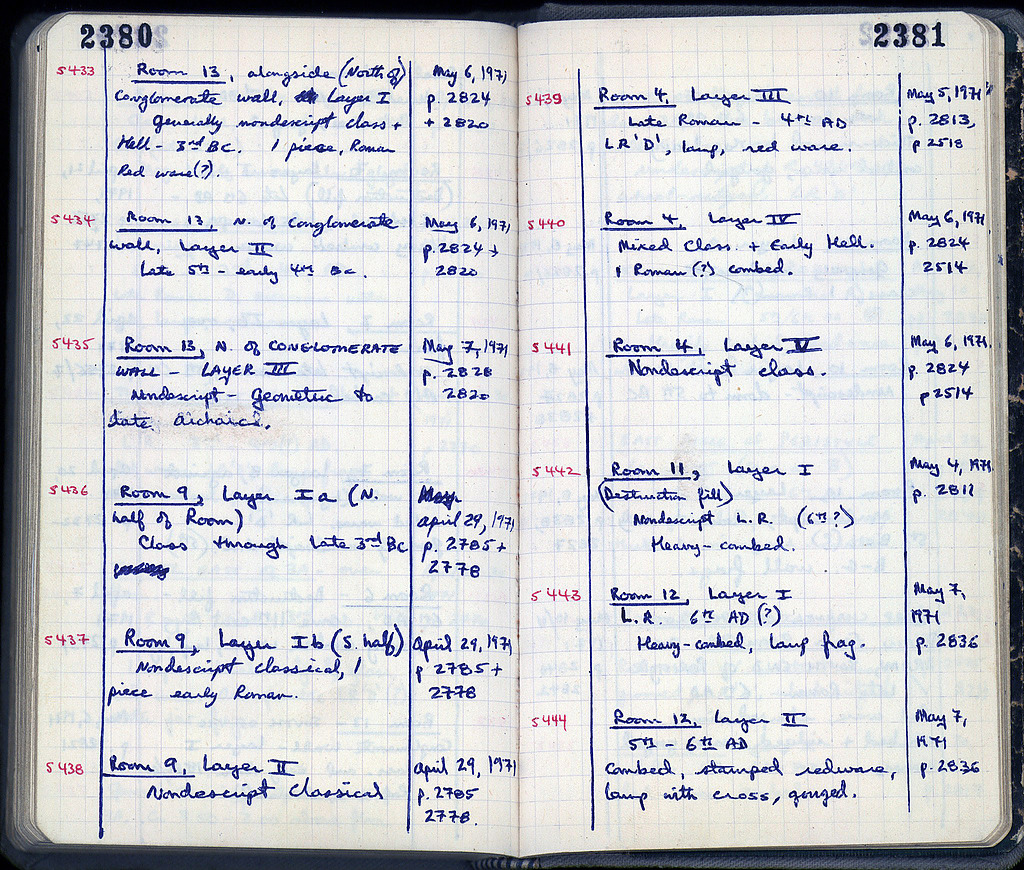 2380
5433 Room 13, alongside (North of) May 6, 1971
Conglomerate wall, Layer I p. 2824
Generally nondescript class + + 2820
Hell - 3rd BC. 1 piece, Roman
Red ware(?).
5434 Room 13, N. of Conglomerate May 6, 1971
wall, Layer II p. 2824 +
Late 5th - early 4th BC. 2820
5435 Room 13, N. of CONGLOMERATE May 7, 1971
WALL - LAYER III p. 2828
Nondescript - Geometric to 2820
late archaic.
5436 Room 9, Layer I a (N. May
half of Room) April 29, 1971
Class through Late 3rd BC p. 2785 +
2778
5437 Room 9, Layer I b (S. half) April 29, 1971
Nondescript Classical, 1 p 2785 +
piece early Roman. 2778
5438 Room 9, Layer II April 29, 1971
Nondescript Classical p. 2785
2778.
2381
5439 Room 4, Layer III May 5, 1971
Late Roman - 4th AD p. 2813,
L.R 'D', lamp, red ware. p 2518
5440 Room 4, Layer IV May 6, 1971
Mixed Class. + Early Hell. p. 2824
1 Roman (?) combed. 2514
5441 Room 4, Layer V May 6, 1971.
Nondescript class. p. 2824
p 2514
5442 Room 11, Layer I May 4, 1971
(Destruction fill) p. 2811
Nondescript L.R. (6th?)
Heavy-combed.
5443 Room 12, Layer I May 7,
L.R. 6th AD (?) 1971
Heavy-combed, lamp frag. p. 2836
5444 Room 12, Layer II May 7,
5th - 6th AD 1971
Combed, stamped redware, p. 2836
lamp with cross, gouged.